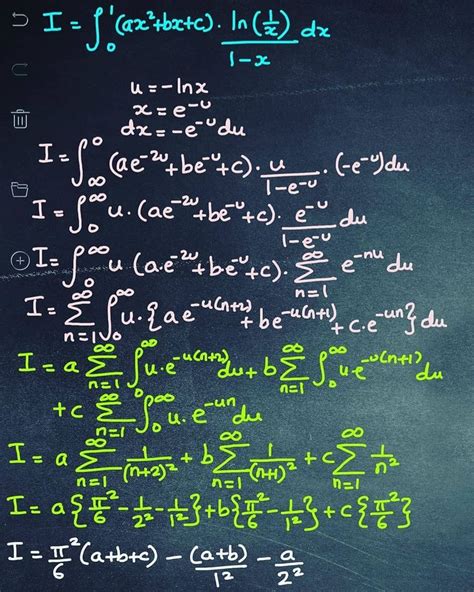 I = ∫₀¹ (ax²+bx+c) · ln(1/x)/(1-x) dx
u = -ln x
x = e^(-u)
dx = -e^(-u) du
I = ∫_∞^0 (ae^(-2u)+be^(-u)+c) · u/(1-e^(-u)) · (-e^(-u)) du
I = ∫_0^∞ u · (ae^(-2u)+be^(-u)+c) · e^(-u)/(1-e^(-u)) du
I = ∫_0^∞ u (a·e^(-2u)+be^(-u)+c) · ∑_(n=1)^∞ e^(-nu) du
I = ∑_(n=1)^∞ ∫_0^∞ u · {ae^(-u(n+2)) + be^(-u(n+1)) + c·e^(-un)} du
I = a ∑_(n=1)^∞ ∫_0^∞ u·e^(-u(n+2)) du + b ∑_(n=1)^∞ ∫_0^∞ u·e^(-u(n+1)) du
+ c ∑_(n=1)^∞ ∫_0^∞ u·e^(-un) du
I = a ∑_(n=1)^∞ 1/(n+2)² + b ∑_(n=1)^∞ 1/(n+1)² + c ∑_(n=1)^∞ 1/n²
I = a{π²/6 - 1/2² - 1/1²} + b{π²/6 - 1/1²} + c{π²/6}
I = π²/6 (a+b+c) - (a+b)/1² - a/2²